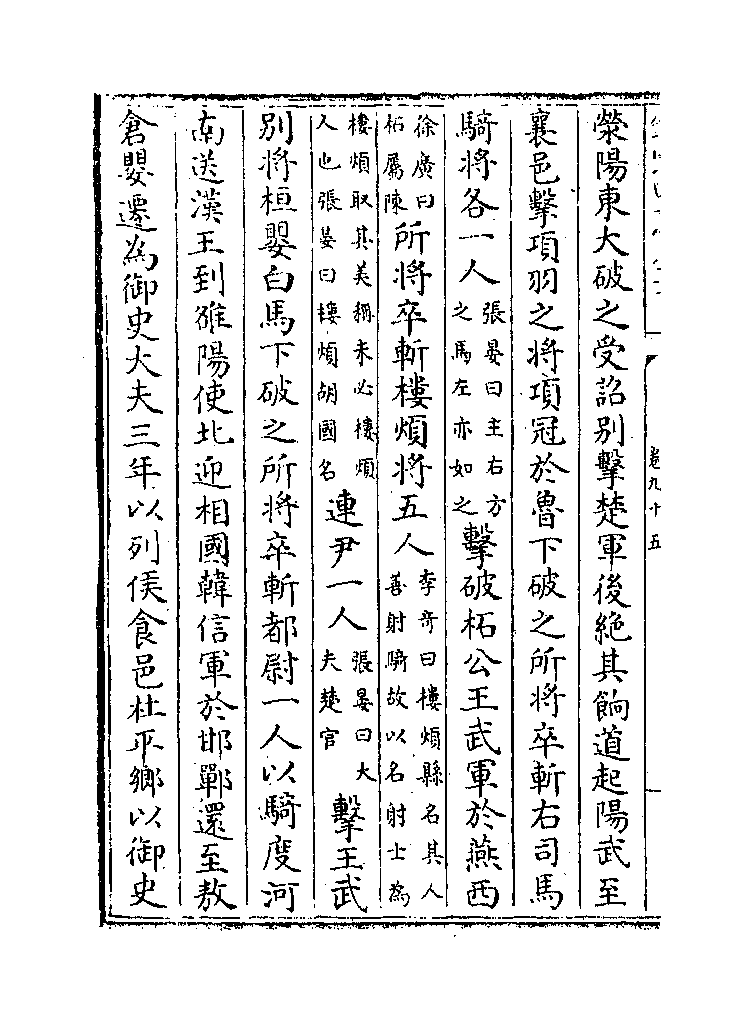 卷九十五
滎陽東大破之受詔别擊楚軍後絶其餉道起陽武至
襄邑擊項羽之將項冠於魯下破之所將卒斬右司馬
騎將各一人張晏曰主右方之馬左亦如之擊破柘公王武軍於燕西
徐廣曰柘屬陳所將卒斬樓煩將五人李竒曰樓煩縣名其人善射騎故以名射士為
樓煩取其美稱未必樓煩人也張晏曰樓煩胡國名連尹一人張晏曰大夫楚官擊王武
别將桓嬰白馬下破之所將卒斬都尉一人以騎度河
南送漢王到雒陽使北迎相國韓信軍於邯鄲還至敖
倉嬰遷為御史大夫三年以列侯食邑杜平鄉以御史